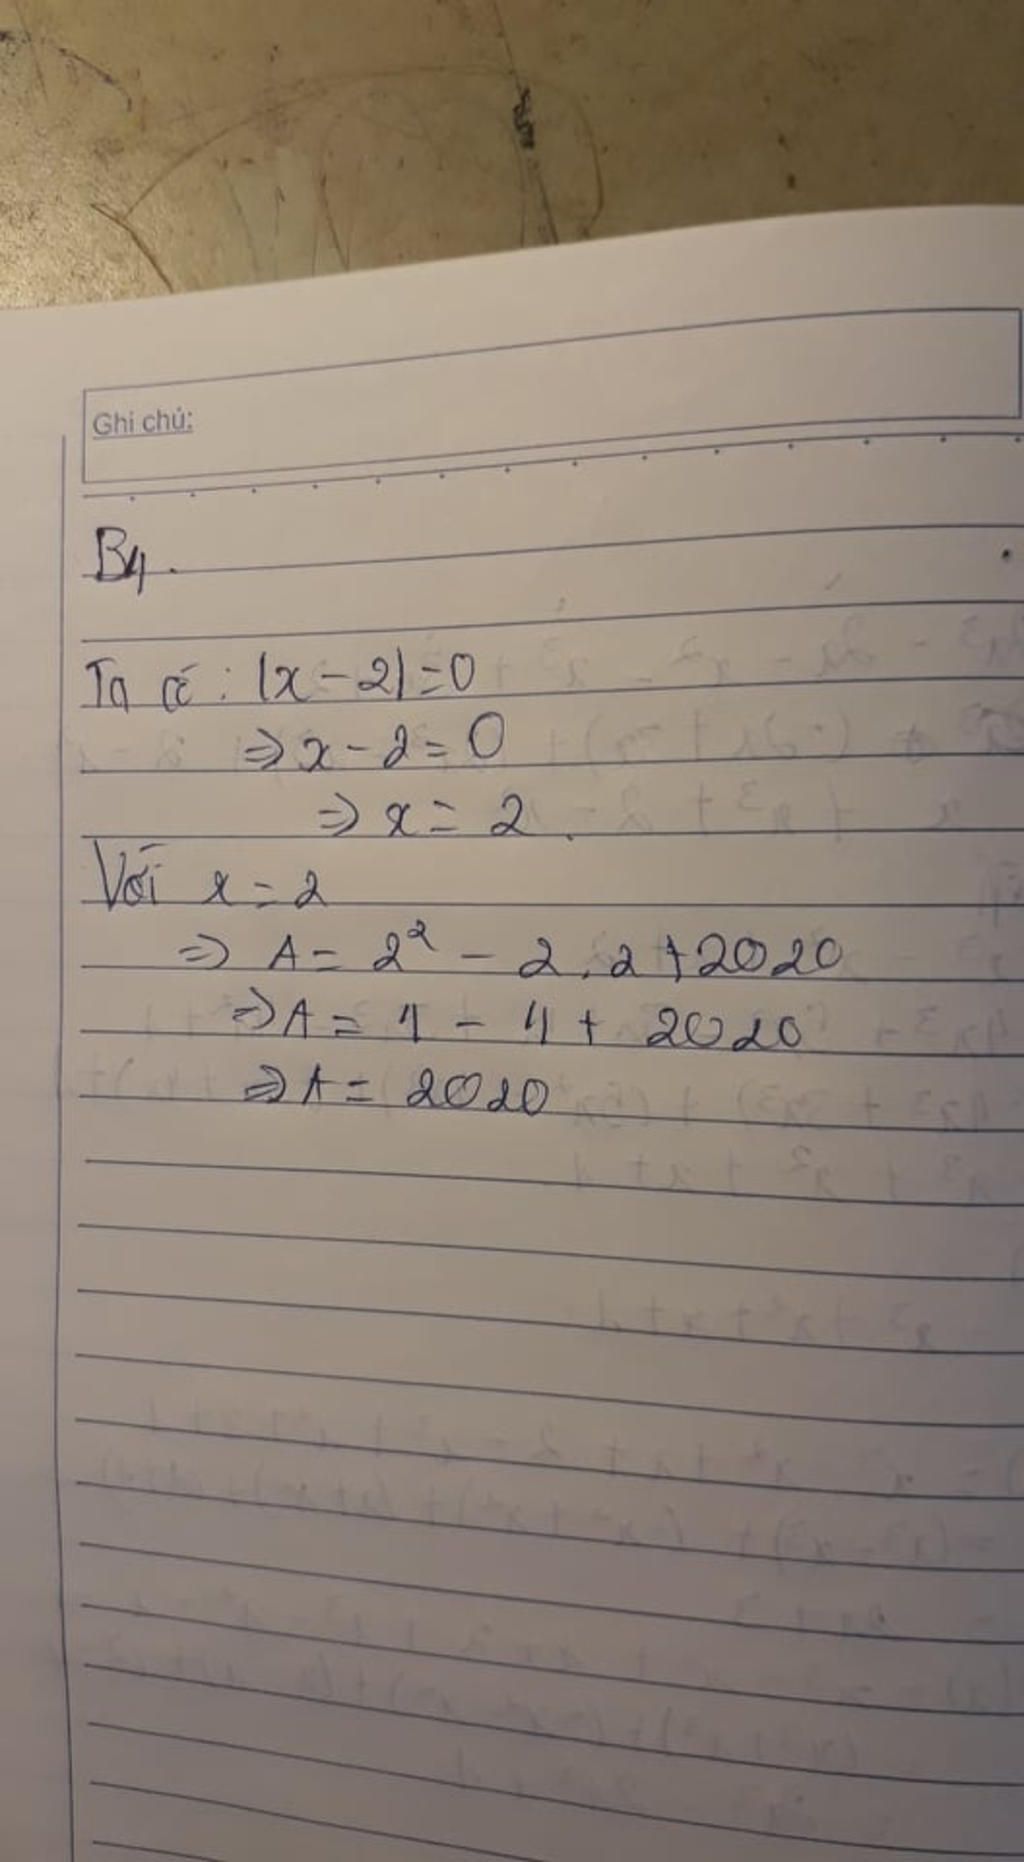 Ghi chú:
B4.
Ta có: |x-2|=0
⇒ x-2=0
⇒ x=2.
Với x=2
⇒ A= 2² - 2.2+2020
⇒ A= 4 - 4 + 2020
⇒ A= 2020